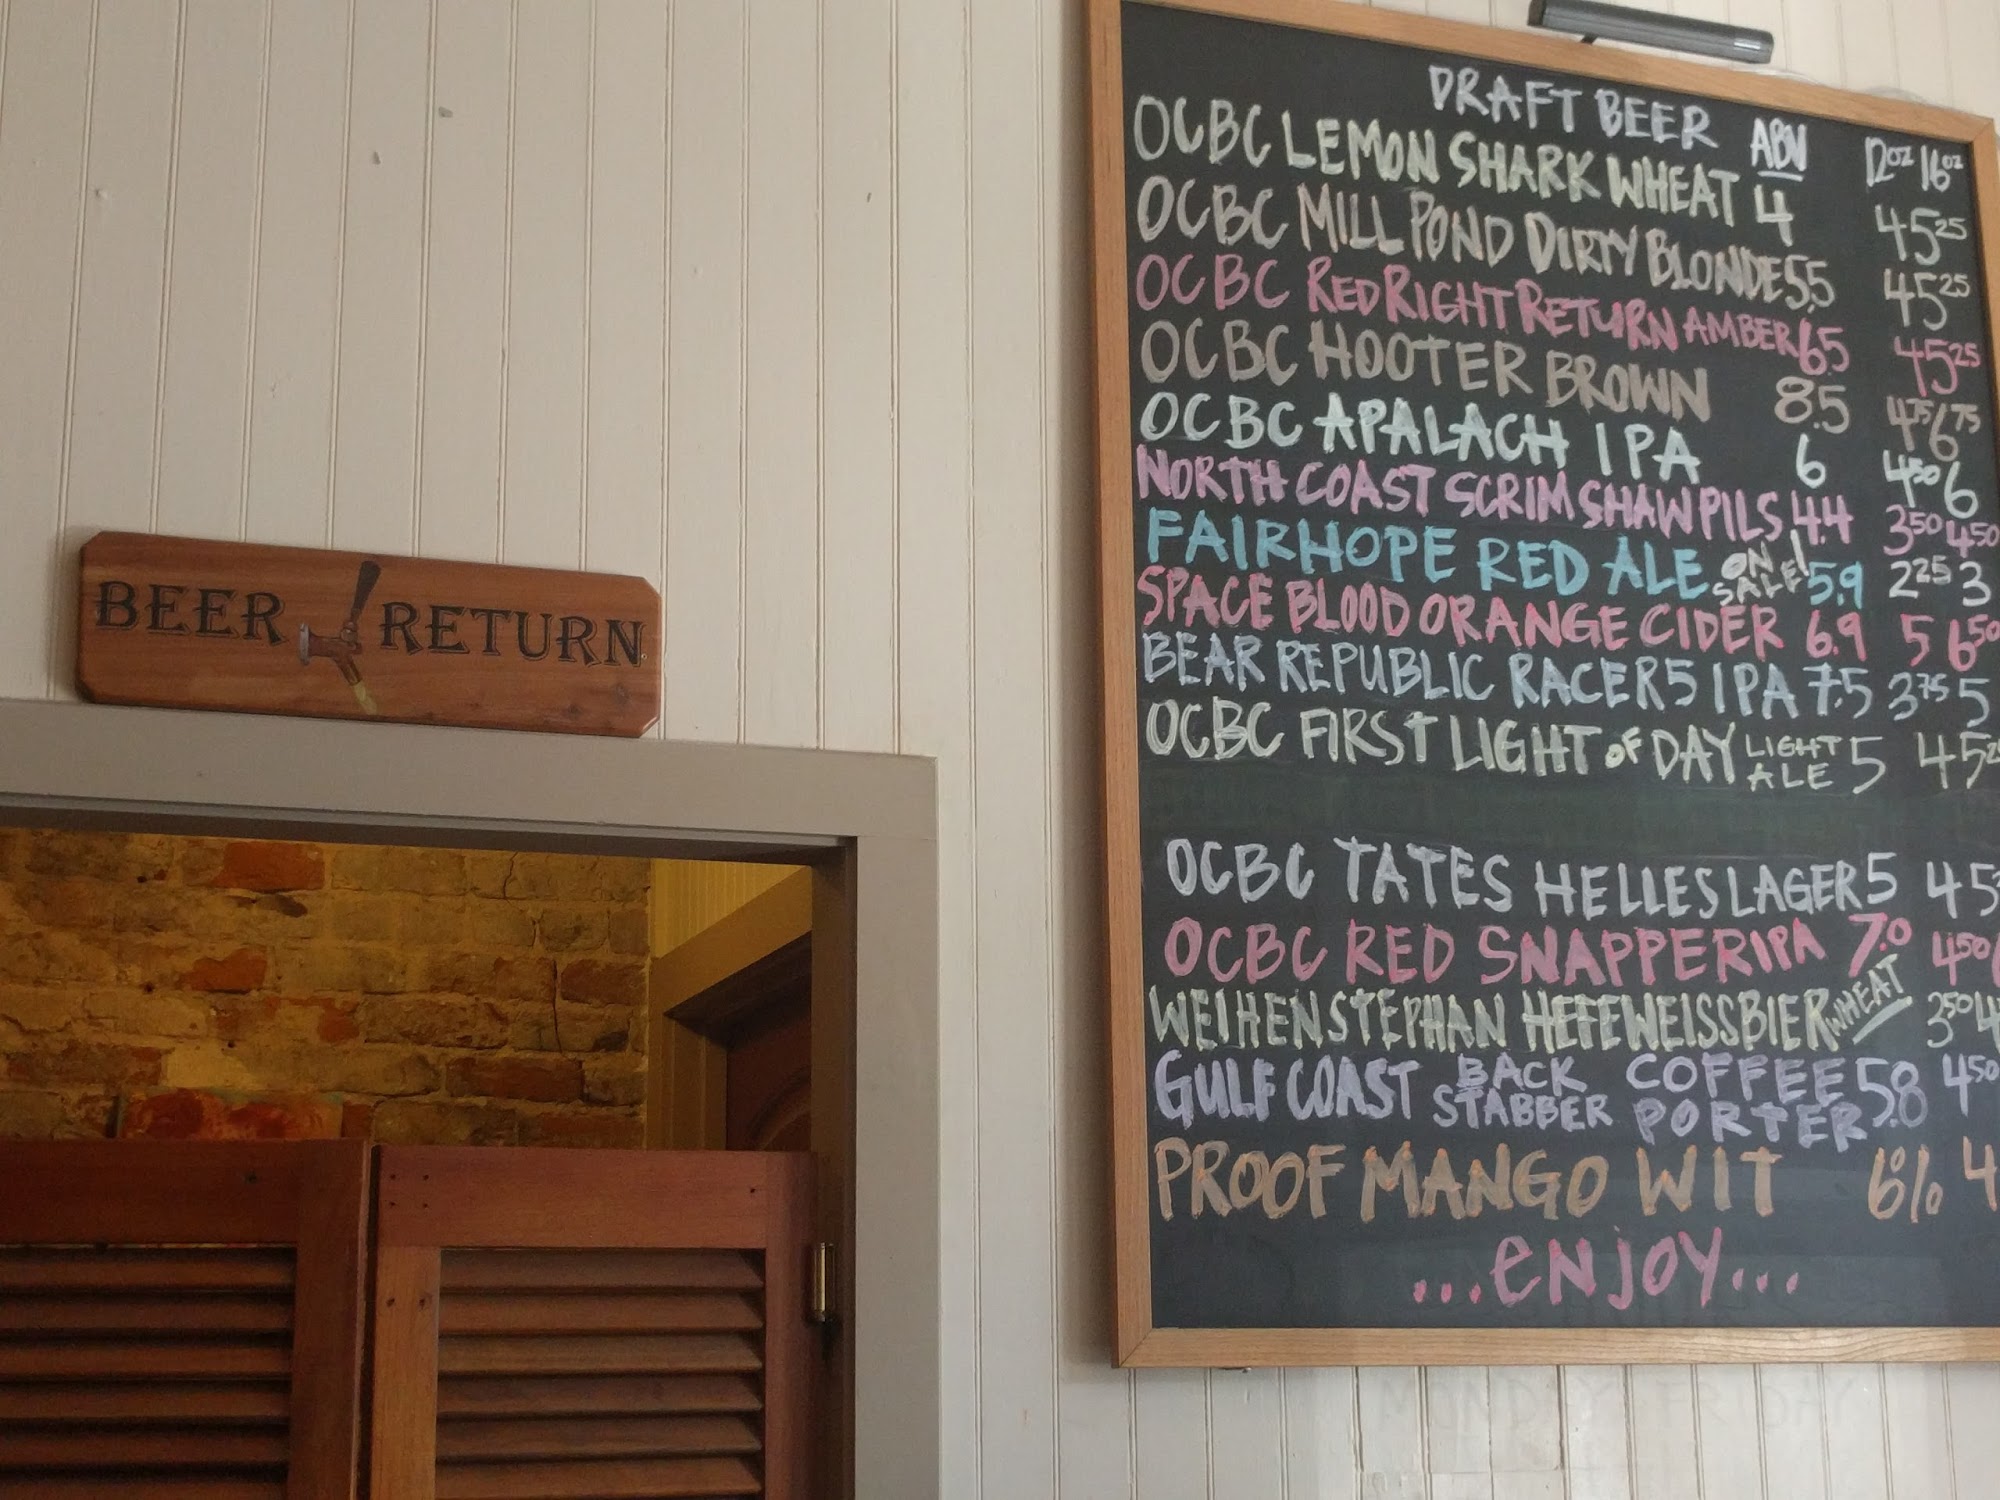 BEER RETURN
DRAFT BEER ABV 12oz 16oz
OCBC LEMON SHARK WHEAT 4 4 5 25
OCBC MILL POND DIRTY BLONDE 5.5 4 5 25
OCBC RED RIGHT RETURN AMBER 6.5 4 5 25
OCBC HOOTER BROWN 8.5 4 75 6 75
OCBC APALACH IPA 6 4 50 6
NORTH COAST SCRIMSHAW PILS 4.4 3 50 4 50
FAIRHOPE RED ALE ON SALE! 5.9 2 25 3
SPACE BLOOD ORANGE CIDER 6.9 5 6 50
BEAR REPUBLIC RACER 5 IPA 7.5 3 75 5
OCBC FIRST LIGHT OF DAY LIGHT ALE 5 4 5
OCBC TATES HELLES LAGER 5 4 5
OCBC RED SNAPPER IPA 7.0 4 50
WEIHENSTEPHAN HEFEWEISSBIER WHEAT 3 50 4
GULF COAST BACK STABBER COFFEE PORTER 5.8 4 50
PROOF MANGO WIT 6% 4
...ENJOY...